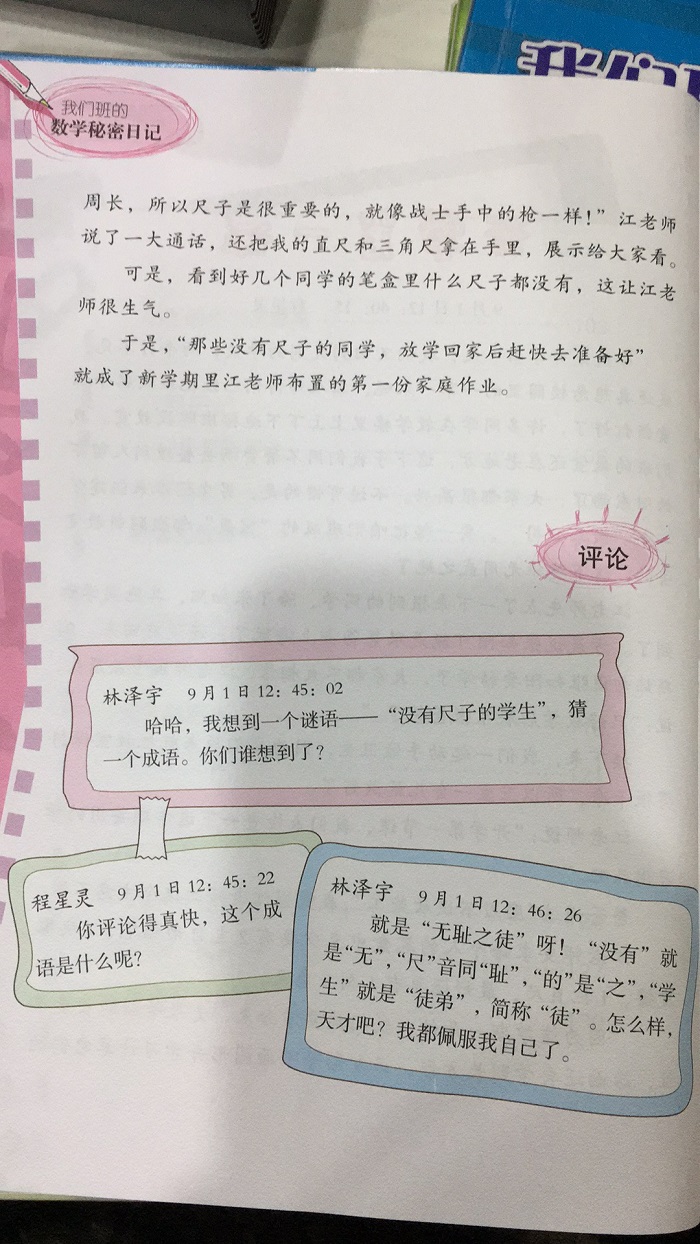 我们班的
数学秘密日记
周长，所以尺子是很重要的，就像战士手中的枪一样！”江老师
说了一大通话，还把我的直尺和三角尺拿在手里，展示给大家看。
可是，看到好几个同学的笔盒里什么尺子都没有，这让江老
师很生气。
于是，“那些没有尺子的同学，放学回家后赶快去准备好”
就成了新学期里江老师布置的第一份家庭作业。
评论
林泽宇 9月1日12：45：02
哈哈，我想到一个谜语——“没有尺子的学生”，猜
一个成语。你们谁想到了？
程星灵 9月1日12：45：22
你评论得真快，这个成
语是什么呢？
林泽宇 9月1日12：46：26
就是“无耻之徒”呀！“没有”就
是“无”，“尺”音同“耻”，“的”是“之”，“学
生”就是“徒弟”，简称“徒”。怎么样，
天才吧？我都佩服我自己了。